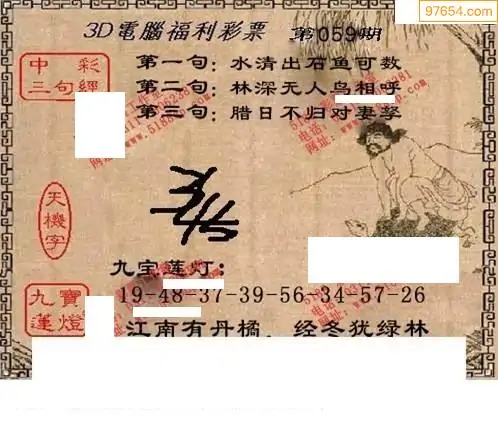 97654.com
3D電腦福利彩票 第059期
中彩
三句經
第一句：水清出石鱼可数
第二句：林深无人鸟相呼
第三句：腊日不归对妻孥
天機字
九宝莲灯：
九寶
蓮燈
19-48-37-39-56-34-57-26
江南有丹橘，经冬犹绿林